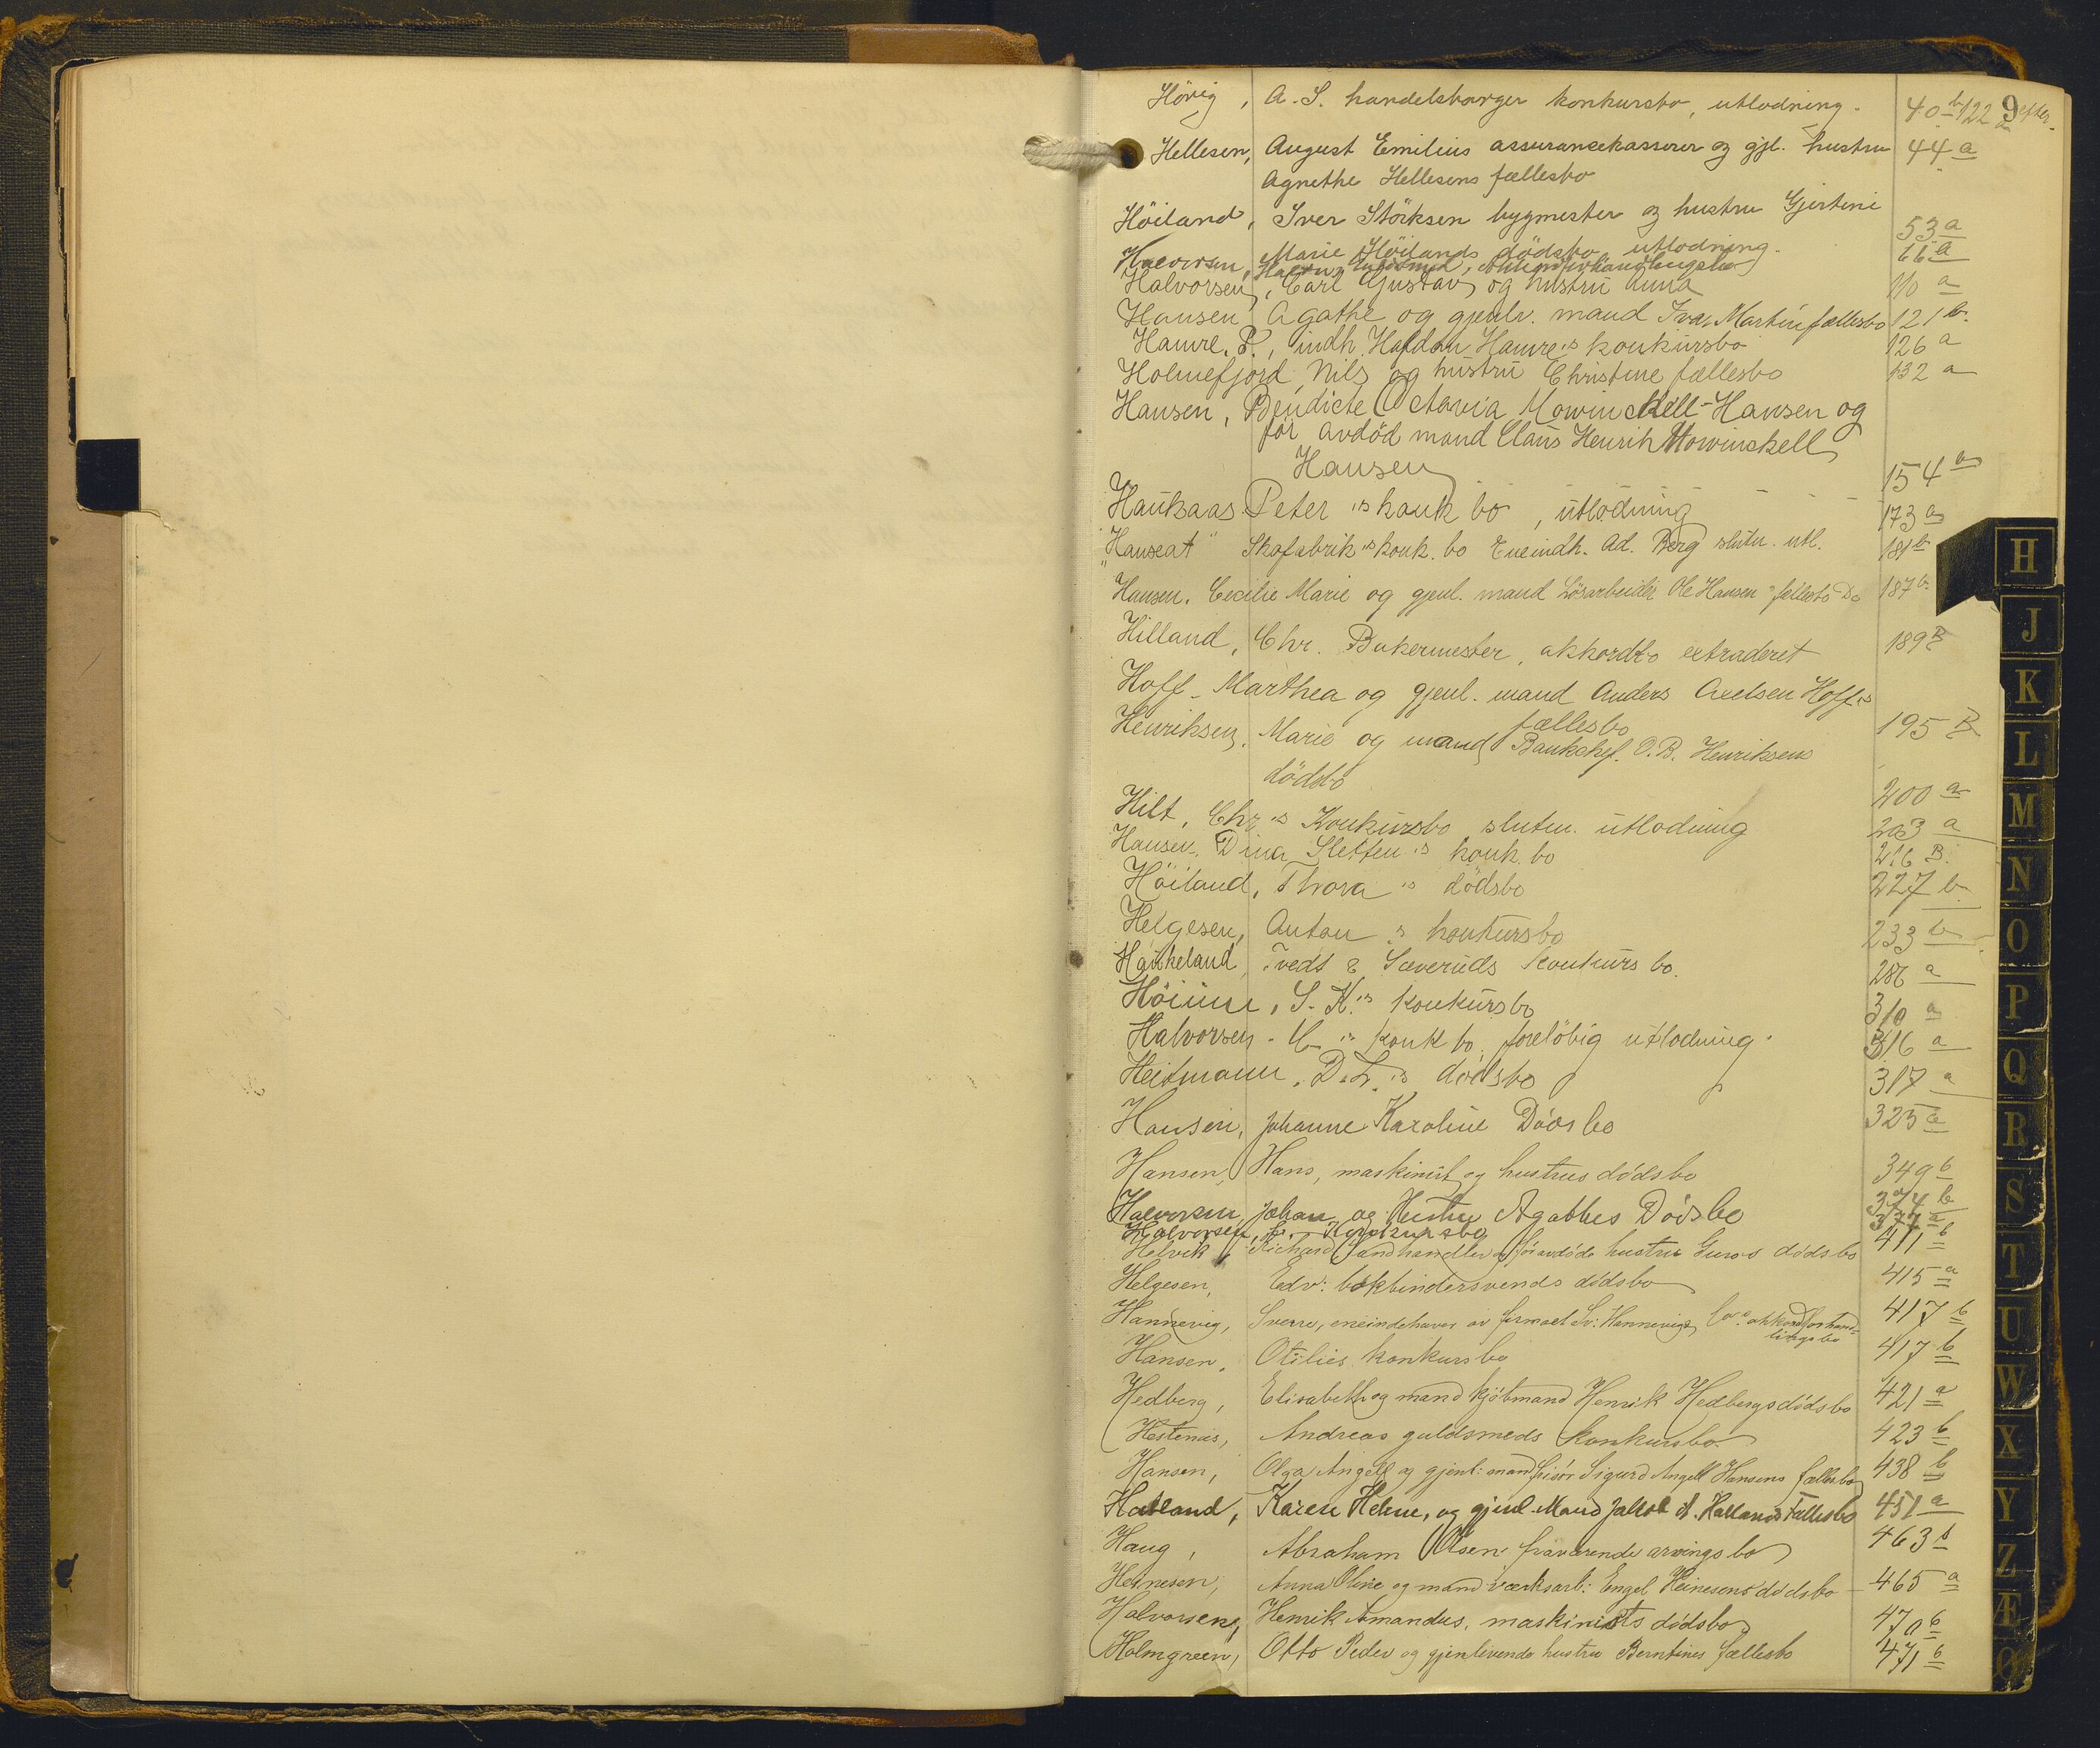 9
Hövig, A. S. handelsborger konkursbo, utlodning. 40 b 122 efter.
Hellesen, August Emilius assurancekasserer og gjl. hustru 44 a
Agnethe Hellesens fællesbo
Höiland, Iver Störksen bygmester og hustru Gjertine
Marie Höilands dödsbo, utlodning. 53 a
Halvorsen, 66 a
Halvorsen, Carl Gustav og hustru Anna 110 a
Hansen Agathe og gjenlv. mand Ivar Martin fællesbo 121 b.
Hamre, P., indh. Halfdan Hamre's konkursbo 126 a
Holmefjord, Nils og hustru Christine fællesbo 132 a
Hansen, Bendicte Octavia Mowinckell-Hansen og
för avdöd mand Claus Henrik Mowinckell
Hansen 154 a
Haukaas Peter 's konk bo, utlodning 173 a
"Hanseat" Skofabrik 's konk. bo Eneindh. Ad. Berg slutn. utl. 181 b
Hansen, Cecilie Marie og gjenl. mand Lösarbeider Ole Hansen's fællesbo 187 b.
Hilland, Chr. Bakermester, akkordbo extraderet 189 B
Hoff - Marthea og gjenl. mand Anders Axelsen Hoff's
fællesbo 195 B
Henriksen, Marie og mand Bankchef. O. B. Henriksens
dödsbo 200 a
Hilt, Chr 's Konkursbo sluttn. utlodning 203 a
Hansen, Dina Sletten 's konk. bo 216 B.
Höiland, Thora 's dödsbo 227 b
Helgesen, Anton 's konkursbo 233 b
Haukeland, Tvedt & Sæveruds konkurs bo. 286 a
Höium, S. K. 's konkursbo 310 a
Halvorsen - 's konk bo, forelöbig utlodning. 316 a
Heitmann, D. L. 's dödsbo 317 a
Hansen, Johanne Karoline Dödsbo 325 a
Hansen, Hans, maskinist og hustrus dödsbo 349 b
Halvorsen, Johan og Hustru Agathes Dödsbo 374 b
Halvorsen, Konkursbo 377 a
Helvik, Richard Landhandler og för avdöde hustru Guros dödsbo 411 b
Helgesen, Edv: bokbindersvends dödsbo 415 a
Hannevig, Sverre, eneindehaver av firmaet Sv: Hannevigs akkordforhand-
lingsbo 417 b
Hansen, Otilies konkursbo 417 b
Hedberg, Elisabeth og mand kjöbmand Henrik Hedbergs dödsbo 421 a
Hestenæs, Andreas guldsmeds konkursbo 423 b
Hansen, Olga Angell og gjenl: mand frisör Sigurd Angell Hansens fællesbo 438 b
Hatland, Karen Helene, og gjenl. Mand Jakob A. Hatlands Fællesbo 451 a
Haug, Abraham Olsen fraværende arvings bo 463 a
Heinesen, Anna Oline og mand værksarb: Engel Heinesens dödsbo 465 a
Halvorsen, Henrik Amandus, maskinists dödsbo 470 b
Holmgreen, Otto Peder og gjenlevende hustru Berntines fællesbo 471 b
H
J
K
L
M
N
O
P
Q
R
S
T
U
W
X
Y
Z
Æ
Ø